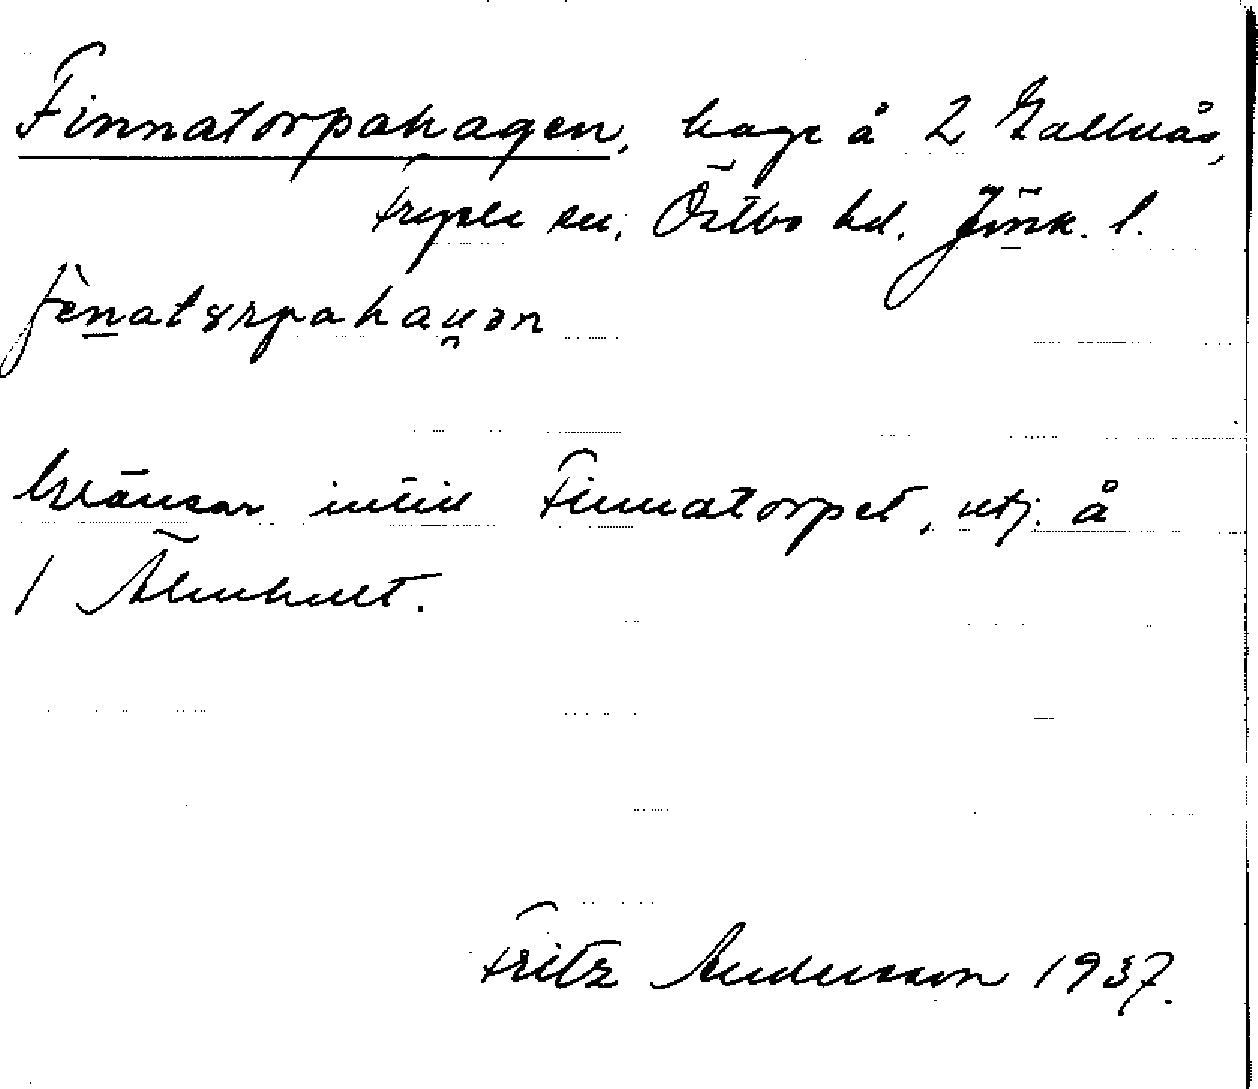 Finnatorpahagen, hage å 2 Gallnås,
Fryele sn, Östbo hd. Jönk. l.
fènatorpahaųən
Gränsar intill Finnatorpet, utj. å
1 Älmhult.
Fritz Andersson 1937.